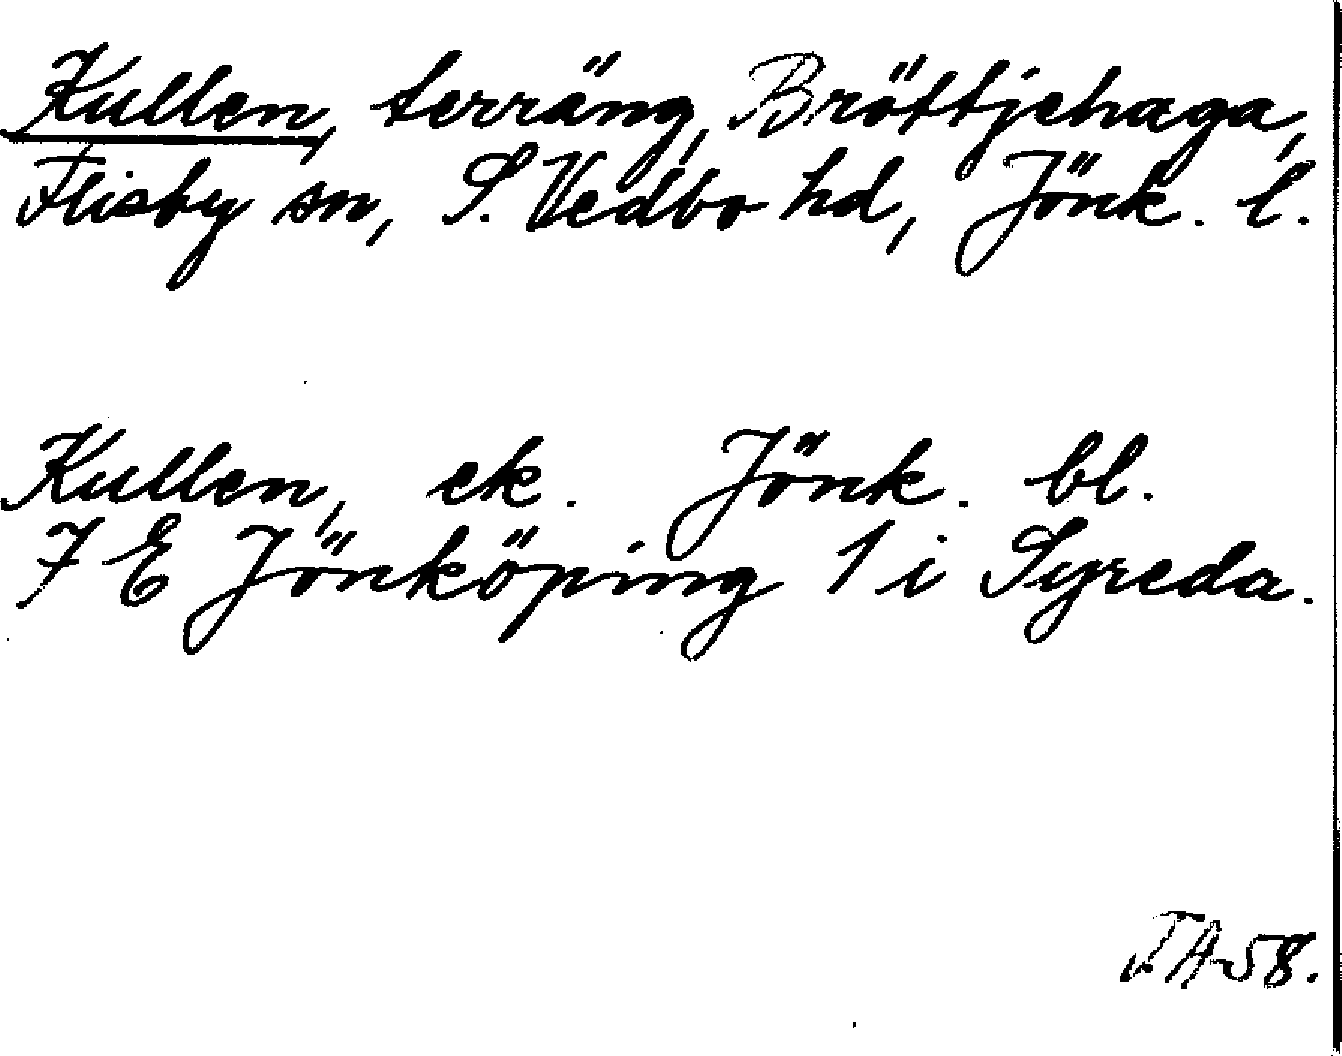 Kullen, terräng, Bröttjehaga,
Flisby sn, S. Vedbo hd, Jönk. l.
Kullen, ek. Jönk. bl.
7 E Jönköping 1 i Syreda.
58.